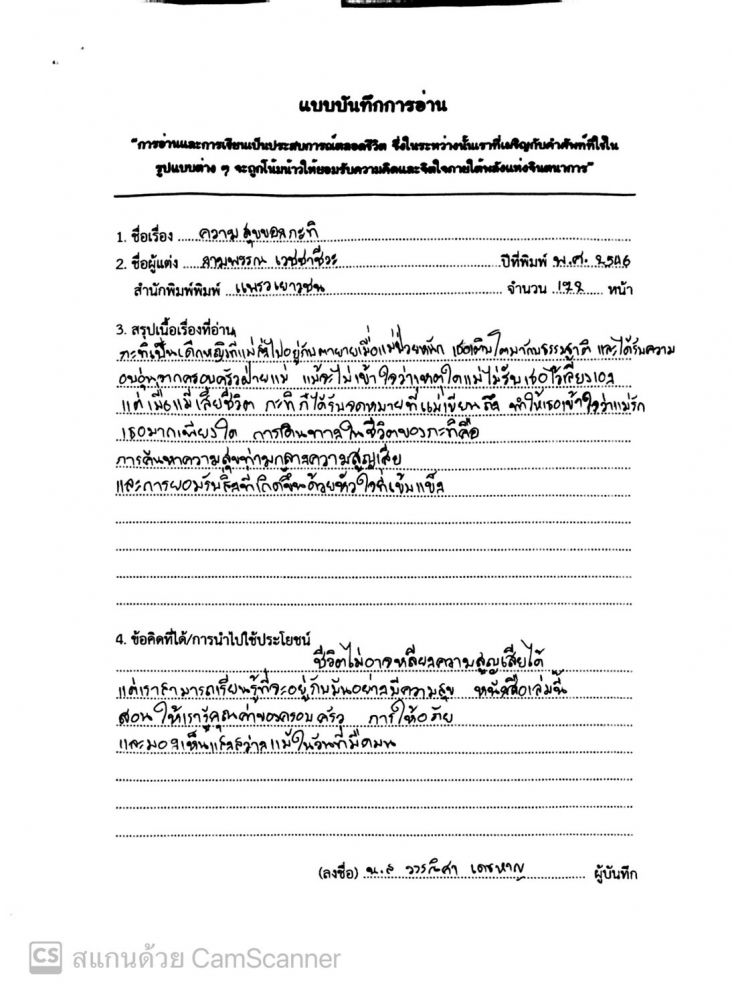 แบบบันทึกการอ่าน
"การอ่านและการเขียนเป็นประสบการณ์ตลอดชีวิต ซึ่งในระหว่างนั้นเราที่เผชิญกับคำศัพท์ที่ใช้ใน
รูปแบบต่าง ๆ จะถูกโน้มน้าวให้ยอมรับความคิดและจิตใจภายใต้พลังแห่งจินตนาการ"
1. ชื่อเรื่อง ความสุขของกะทิ
2. ชื่อผู้แต่ง งามพรรณ เวชชาชีวะ ปีที่พิมพ์ พ.ศ. 2546
สำนักพิมพ์พิมพ์ แพรวเยาวชน จำนวน หน้า
3. สรุปเนื้อเรื่องที่อ่าน
กะทิเป็นเด็กหญิงที่แม่ส่งไปอยู่กับตายายเมื่อแม่ป่วยหนัก เธอเติบโตมากับธรรมชาติ และได้รับความ
อบอุ่นจากครอบครัวฝ่ายแม่ แม้จะไม่เข้าใจว่าเหตุใดแม่ไม่รับเธอไว้เลี้ยงเอง
แต่เมื่อแม่เสียชีวิต กะทิก็ได้รับจดหมายที่แม่เขียนถึง ทำให้เธอเข้าใจว่าแม่รัก
เธอมากเพียงใด การเดินทางในชีวิตของกะทิคือ
การค้นหาความสุขท่ามกลางความสูญเสีย
และการยอมรับสิ่งที่เกิดขึ้นด้วยหัวใจที่เข้มแข็ง
4. ข้อคิดที่ได้/การนำไปใช้ประโยชน์
ชีวิตไม่อาจหลีกเลี่ยงความสูญเสียได้
แต่เราสามารถเรียนรู้ที่จะอยู่กับมันอย่างมีความสุข หนังสือเล่มนี้
สอนให้เรารู้คุณค่าของครอบครัว การให้อภัย
และมองเห็นแสงสว่างแม้ในวันที่มืดมน
(ลงชื่อ) น.ส ผู้บันทึก
CS สแกนด้วย CamScanner